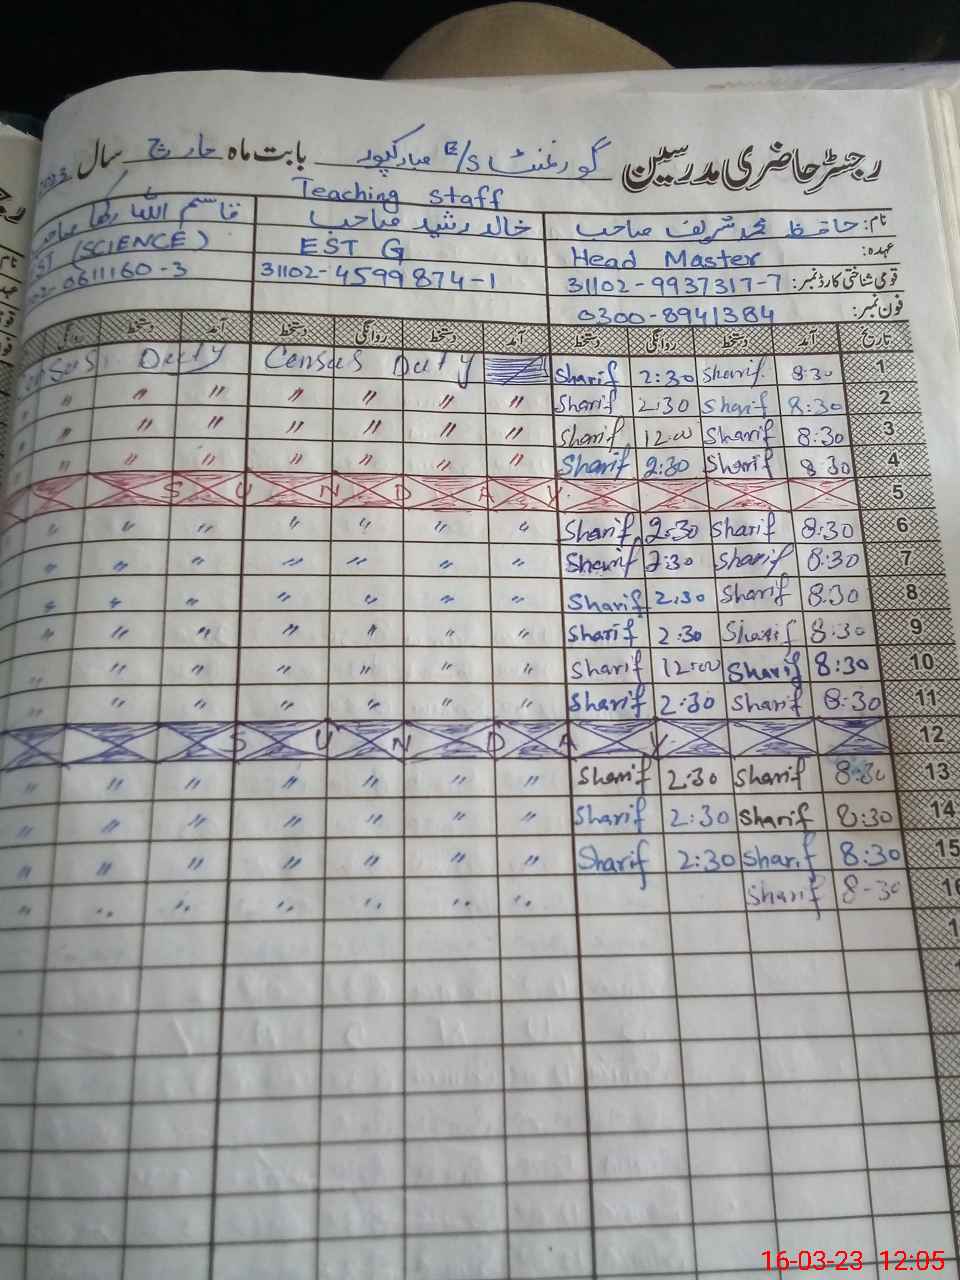 رجسٹر حاضری مدرسین گورنمنٹ E/S مبارکپور بابت ماہ مارچ سال 2023
Teaching staff
نام: حافظ محمد شریف صاحب خالد رشید صاحب قاسم اللہ رکھا صاحب
عہدہ: Head Master EST G EST (SCIENCE)
قومی شناختی کارڈ نمبر: 31102-9937317-7 31102-4599874-1 0611160-3
فون نمبر: 0300-8941384
تاریخ آمد دستخط روانگی دستخط آمد دستخط روانگی دستخط آمد دستخط روانگی
1 8:30 Sharif 2:30 Sharif Census Duty Census Duty
2 8:30 Sharif 2:30 Sharif " " " " " " "
3 8:30 Sharif 12:00 Sharif " " " " " " "
4 8:30 Sharif 2:30 Sharif " " " " " " "
5 SUNDAY
6 8:30 Sharif 2:30 Sharif " " " " " " "
7 8:30 Sharif 2:30 Sharif " " " " " " "
8 8:30 Sharif 2:30 Sharif " " " " " " "
9 8:30 Sharif 2:30 Sharif " " " " " " "
10 8:30 Sharif 12:00 Sharif " " " " " " "
11 8:30 Sharif 2:30 Sharif " " " " " " "
12 SUNDAY
13 8:30 Sharif 2:30 Sharif " " " " " " "
14 8:30 Sharif 2:30 Sharif " " " " " " "
15 8:30 Sharif 2:30 Sharif " " " " " " "
16 8-30 Sharif " " " " " " "
16-03-23 12:05